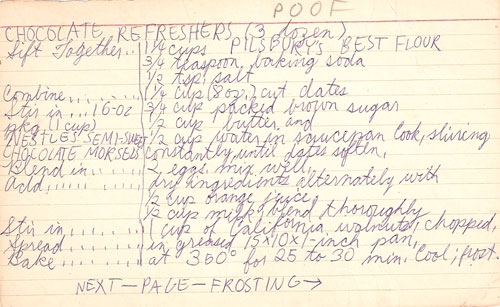 POOF
CHOCOLATE REFRESHERS (3 dozen)
Sift Together... 1 1/4 cups PILSBURY'S BEST FLOUR
3/4 teaspoon baking soda
1/2 tsp. salt
Combine........ 1 1/4 cup (8oz.) cut dates
Stir in... 1 6-oz 3/4 cup packed brown sugar
pkg. (1 cup) 1/2 cup butter and
NESTLES SEMI-SWEET 1/2 cup water in saucepan Cook, stirring
CHOCOLATE MORSELS constantly until dates soften,
Blend in....... 2 eggs mix well,
Add,....... dry ingredients alternately with
1/2 cup orange juice
1/2 cup milk, blend thoroughly
Stir in....... 1 cup of California walnuts, chopped,
Spread....... in greased 15x10x1-inch pan,
Bake........ at 350° for 25 to 30 min. Cool; frost.
NEXT-PAGE-FROSTING→